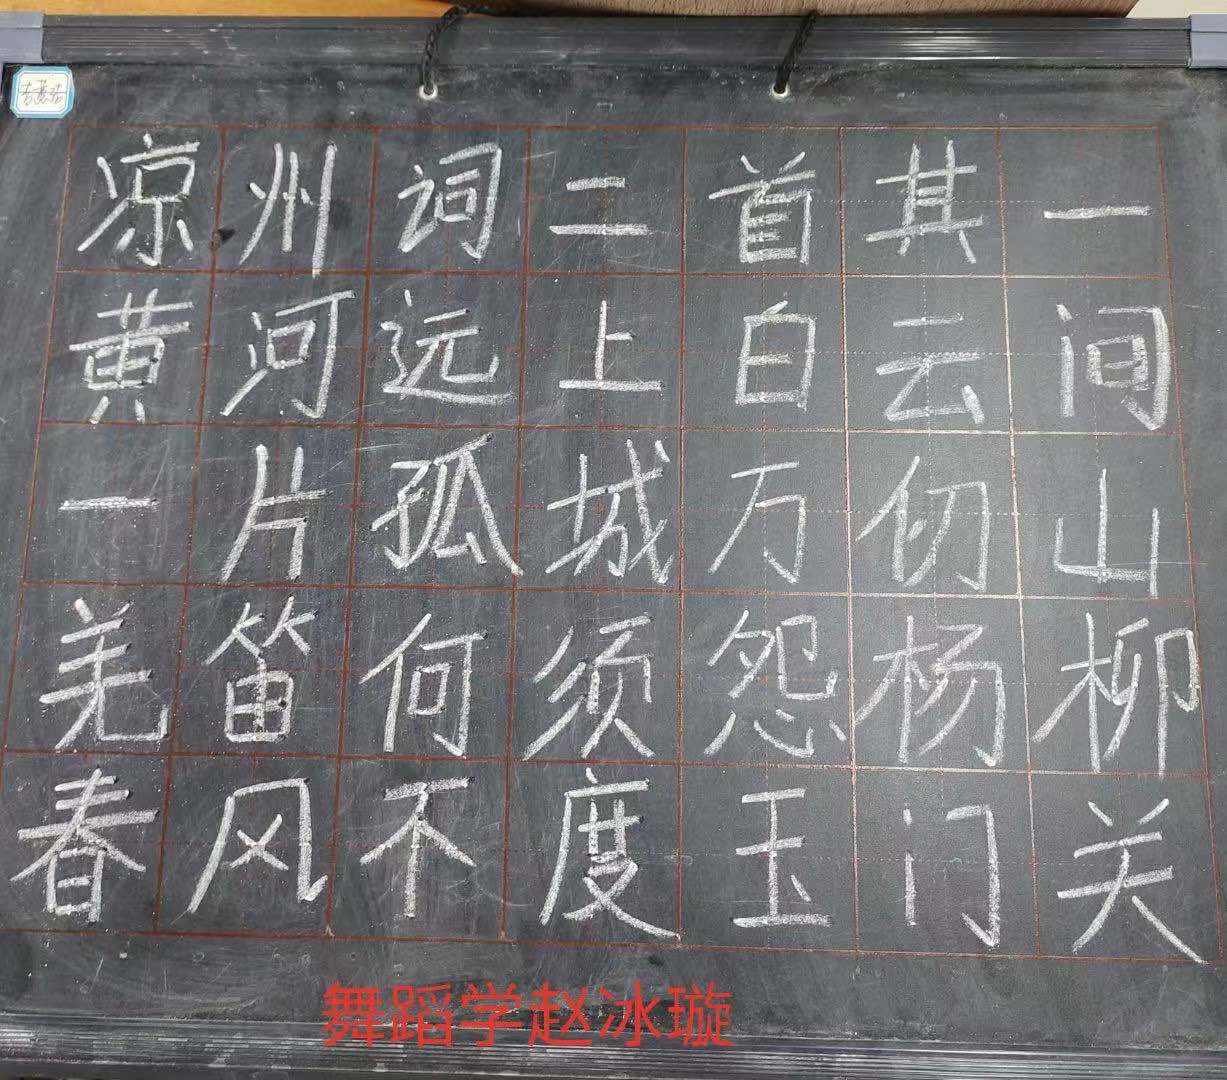 凉州词二首其一
黄河远上白云间
一片孤城万仞山
羌笛何须怨杨柳
春风不度玉门关
舞蹈学赵冰璇